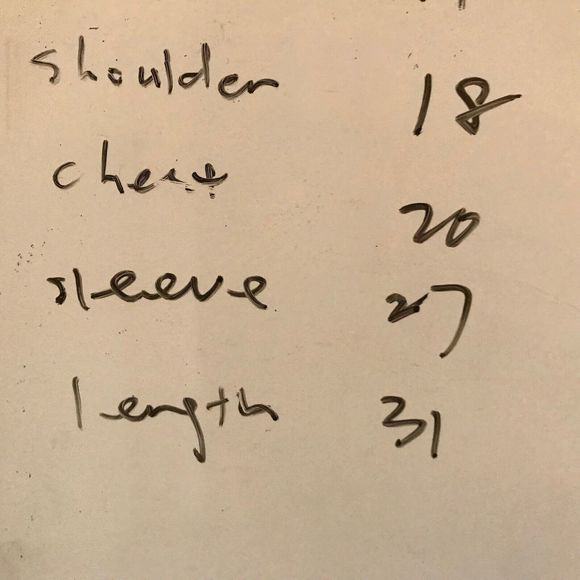 shoulder 18
chest 20
sleeve 27
length 31